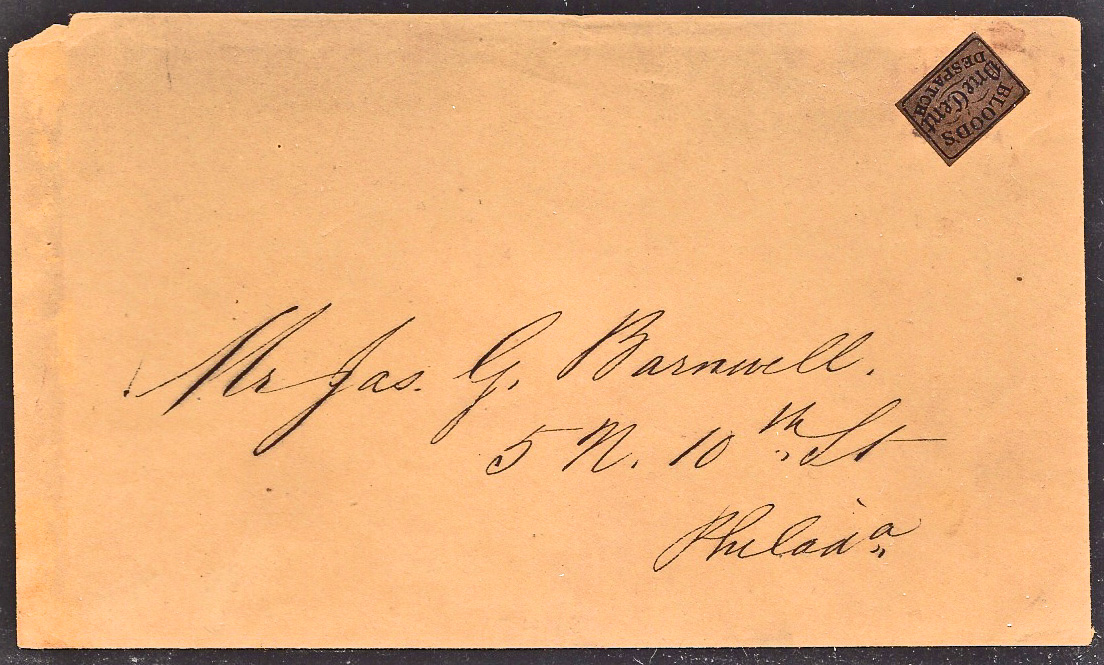 BLOOD'S
One Cent
DESPATCH
Mr Jas. G. Barnwell.
5 N. 10th St
Philada